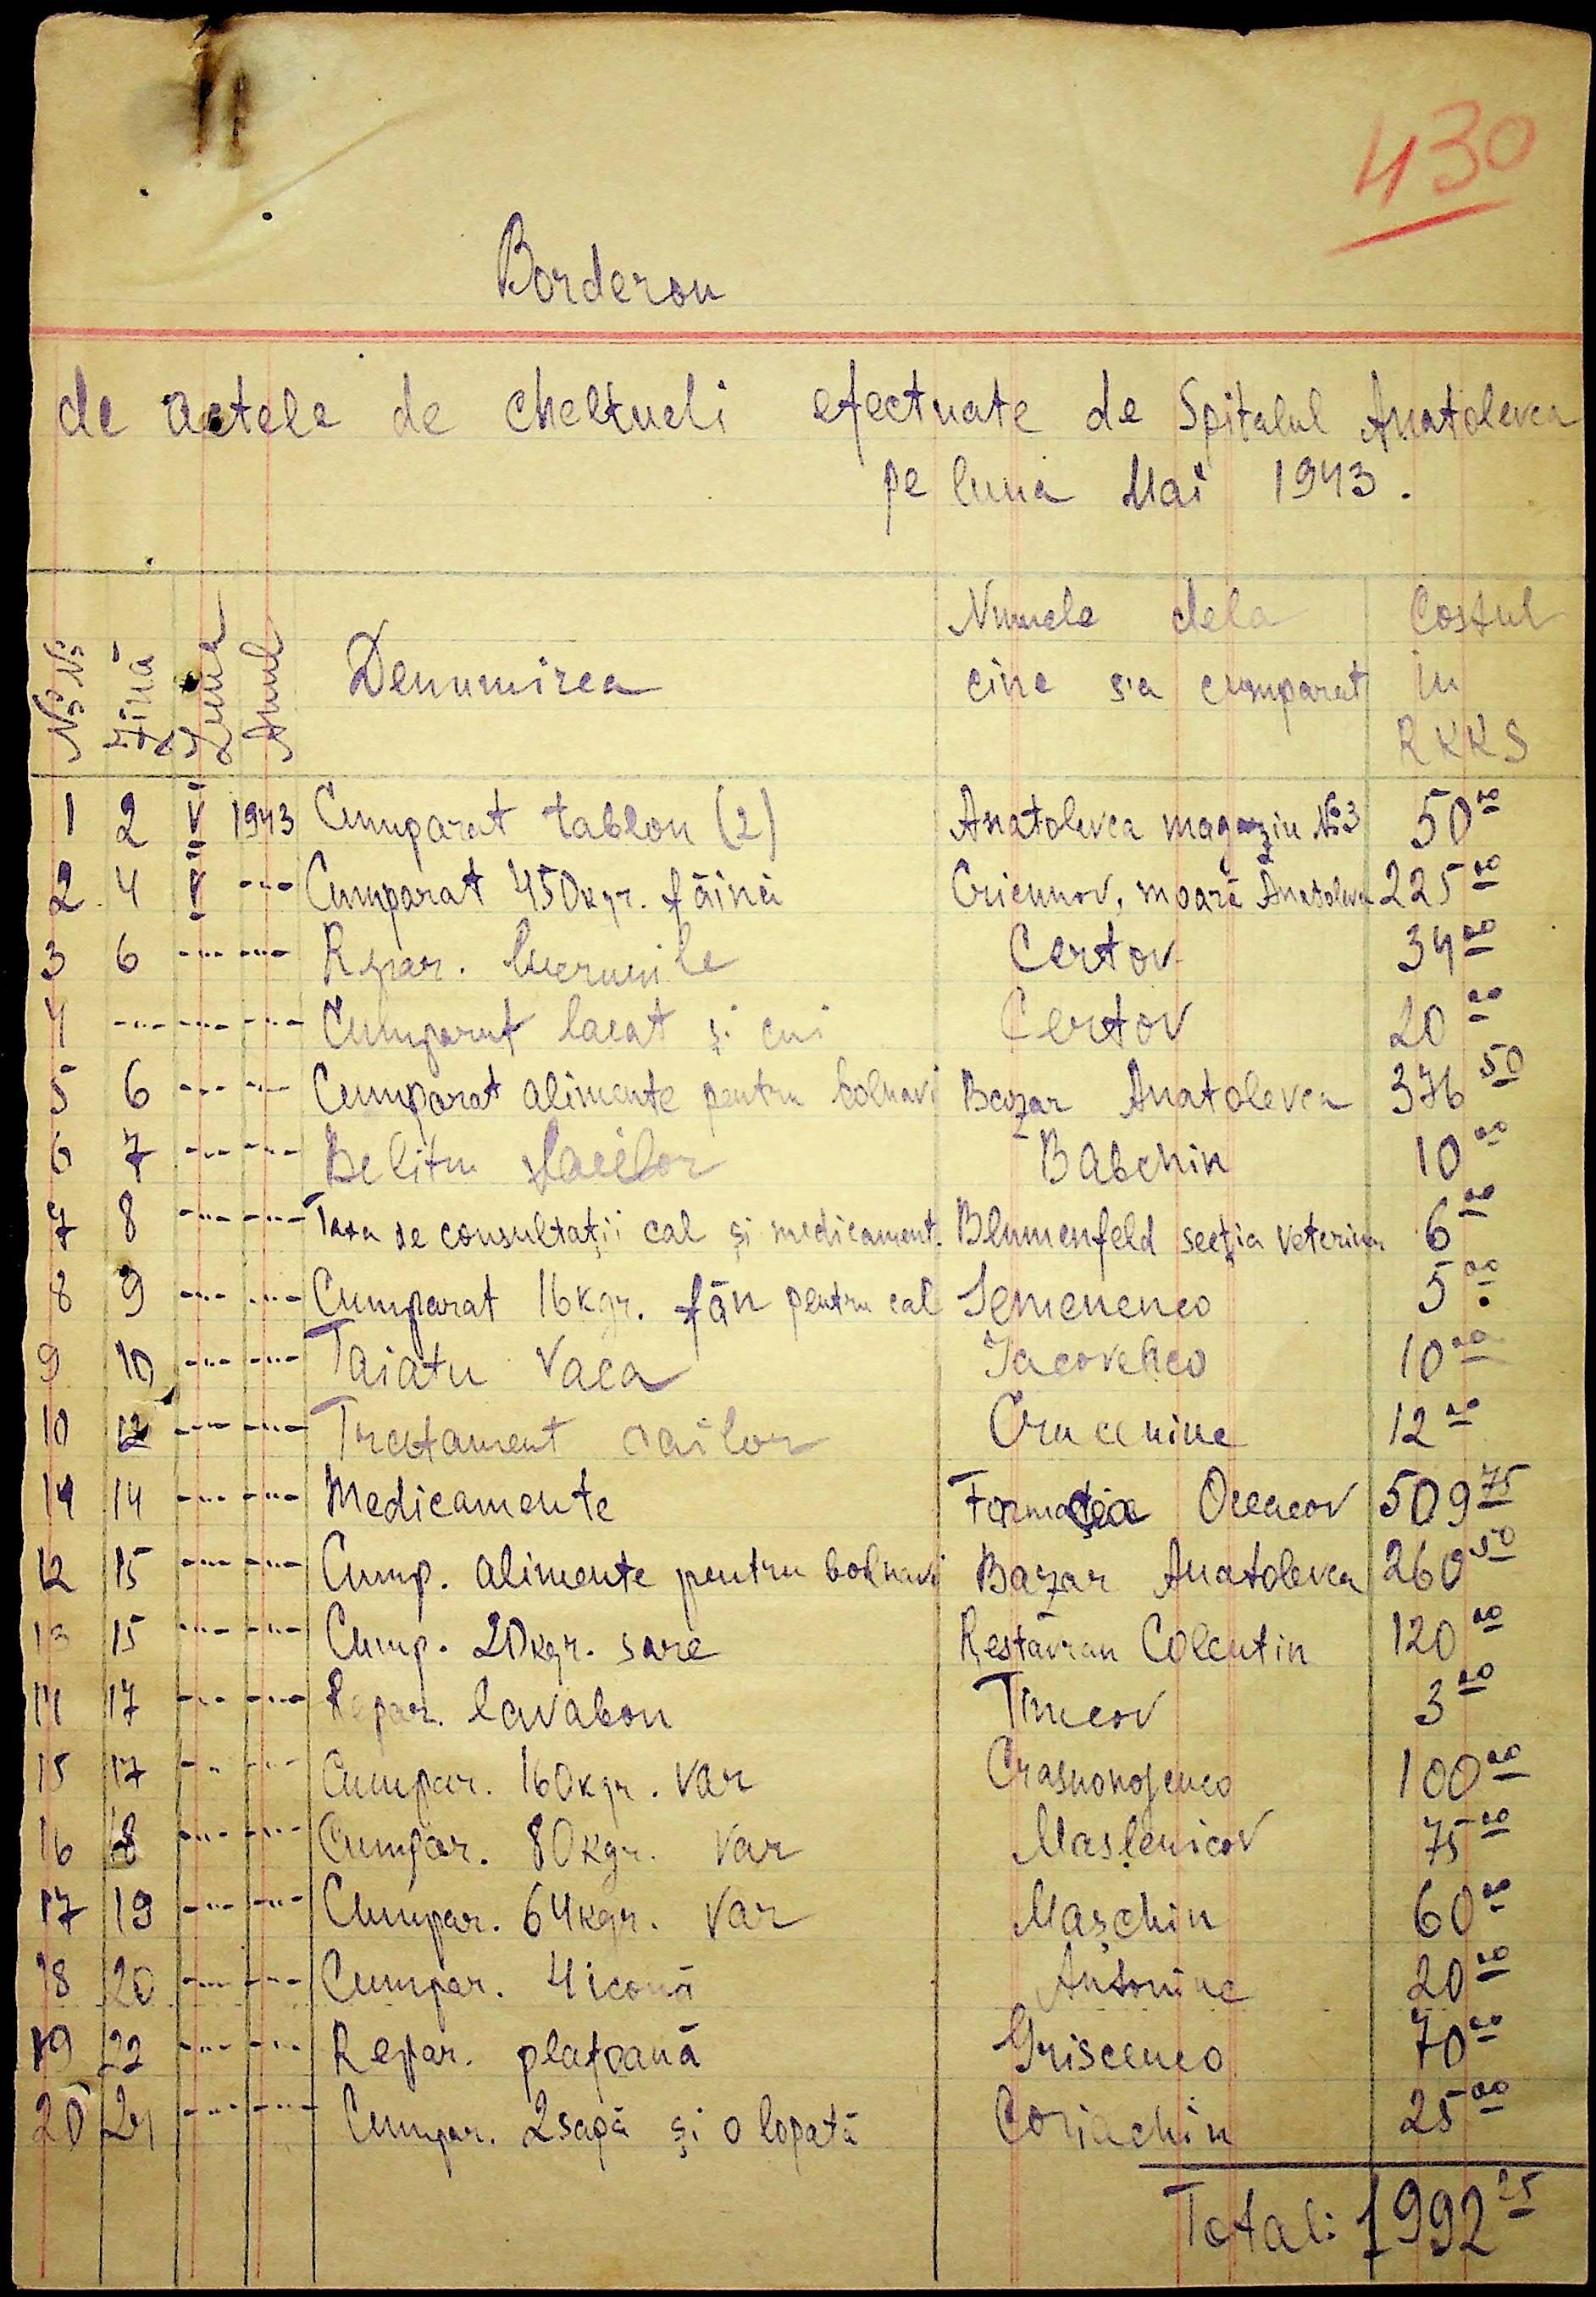 430
Borderou
de actele de cheltueli efectuate de Spitalul Anatolevca
pe luna Mai 1943.
№ № Zină Luna Anul Denumirea Numele dela cine s'a cumparat Costul in RKKS
1 2 V 1943 Cumparat tablou (2) Anatolevca magazin № 3 50 00
2 4 V -"- Cumparat 450 kgr. făină Criennov, moară Anatolevca 225 00
3 6 -"- -"- Repar. lucrurile Certov 34 00
4 -"- -"- -"- Cumparat lacat și cui Certov 20 00
5 6 -"- -"- Cumparat alimente pentru bolnavi Bazar Anatolevca 376 50
6 7 -"- -"- Belitu Babchin 10 00
7 8 -"- -"- Taxa de consultații cal și medicament. Blumenfeld secția veterinar 6 00
8 9 -"- -"- Cumparat 16 kgr. fân pentru cal Semenenco 5 00
9 10 -"- -"- Taiatu vaca Iacovenco 10 00
10 12 -"- -"- Tratament cailor 12 00
11 14 -"- -"- Medicamente Farmacia Oceacov 509 75
12 15 -"- -"- Cump. alimente pentru bolnavi Bazar Anatolevca 260 50
13 15 -"- -"- Cump. 20 kgr. sare Restăvran Colentin 120 00
14 17 -"- -"- Repar. lavabou Timcov 3 00
15 17 -"- -"- Cumpar. 160 kgr. var Crasnonojenco 100 00
16 18 -"- -"- Cumpar. 80 kgr. var Mașlenicov 75 00
17 19 -"- -"- Cumpar. 64 kgr. var Mașchin 60 00
18 20 -"- -"- Cumpar. 4 iconă Antonine 20 00
19 22 -"- -"- Repar. plafoană Griscenco 70 00
20 24 -"- -"- Cumpar. 2 sapă și o lopată Coriachin 25 00
Total: 1992 25